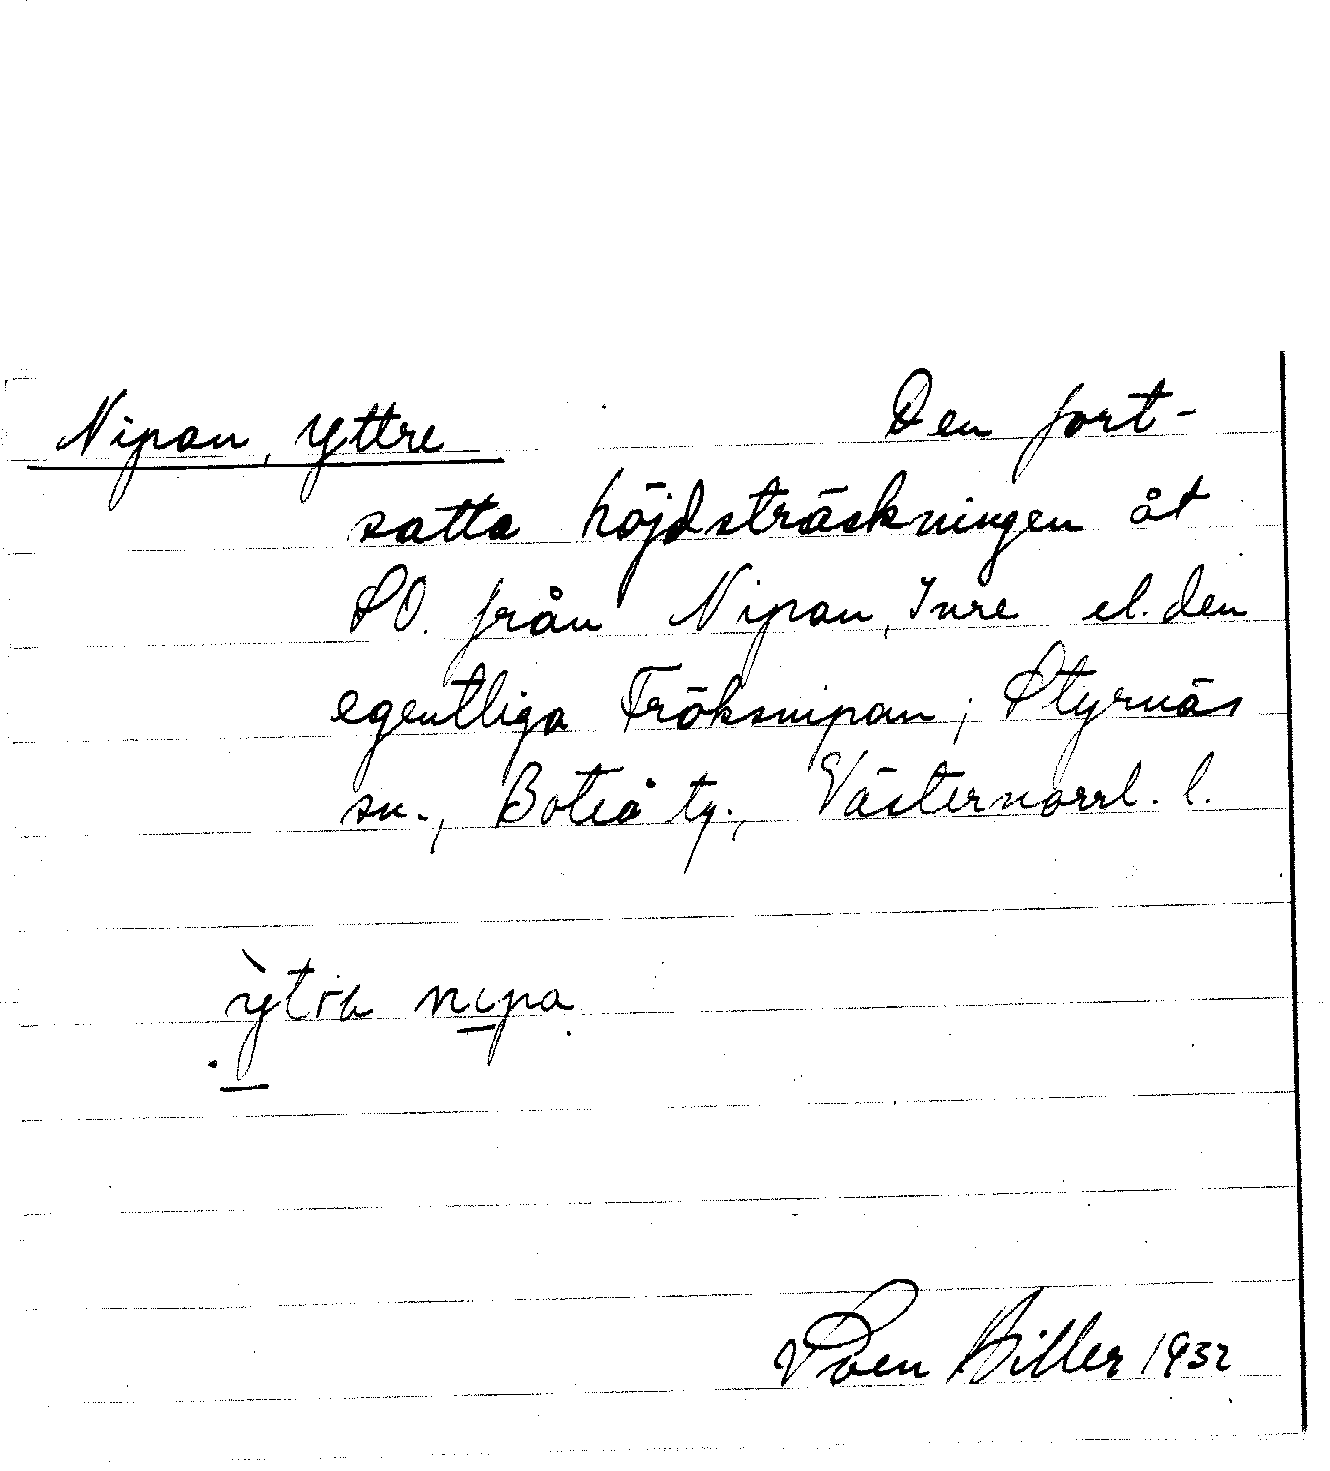 Nipan, Yttre Den fort-
satta höjdsträckningen åt
SO. från Nipan, Inre el. den
egentliga Fröksnipan; Styrnäs
sn., Boteå tg., Västernorrl. l.
nipa
Sven Biller 1932